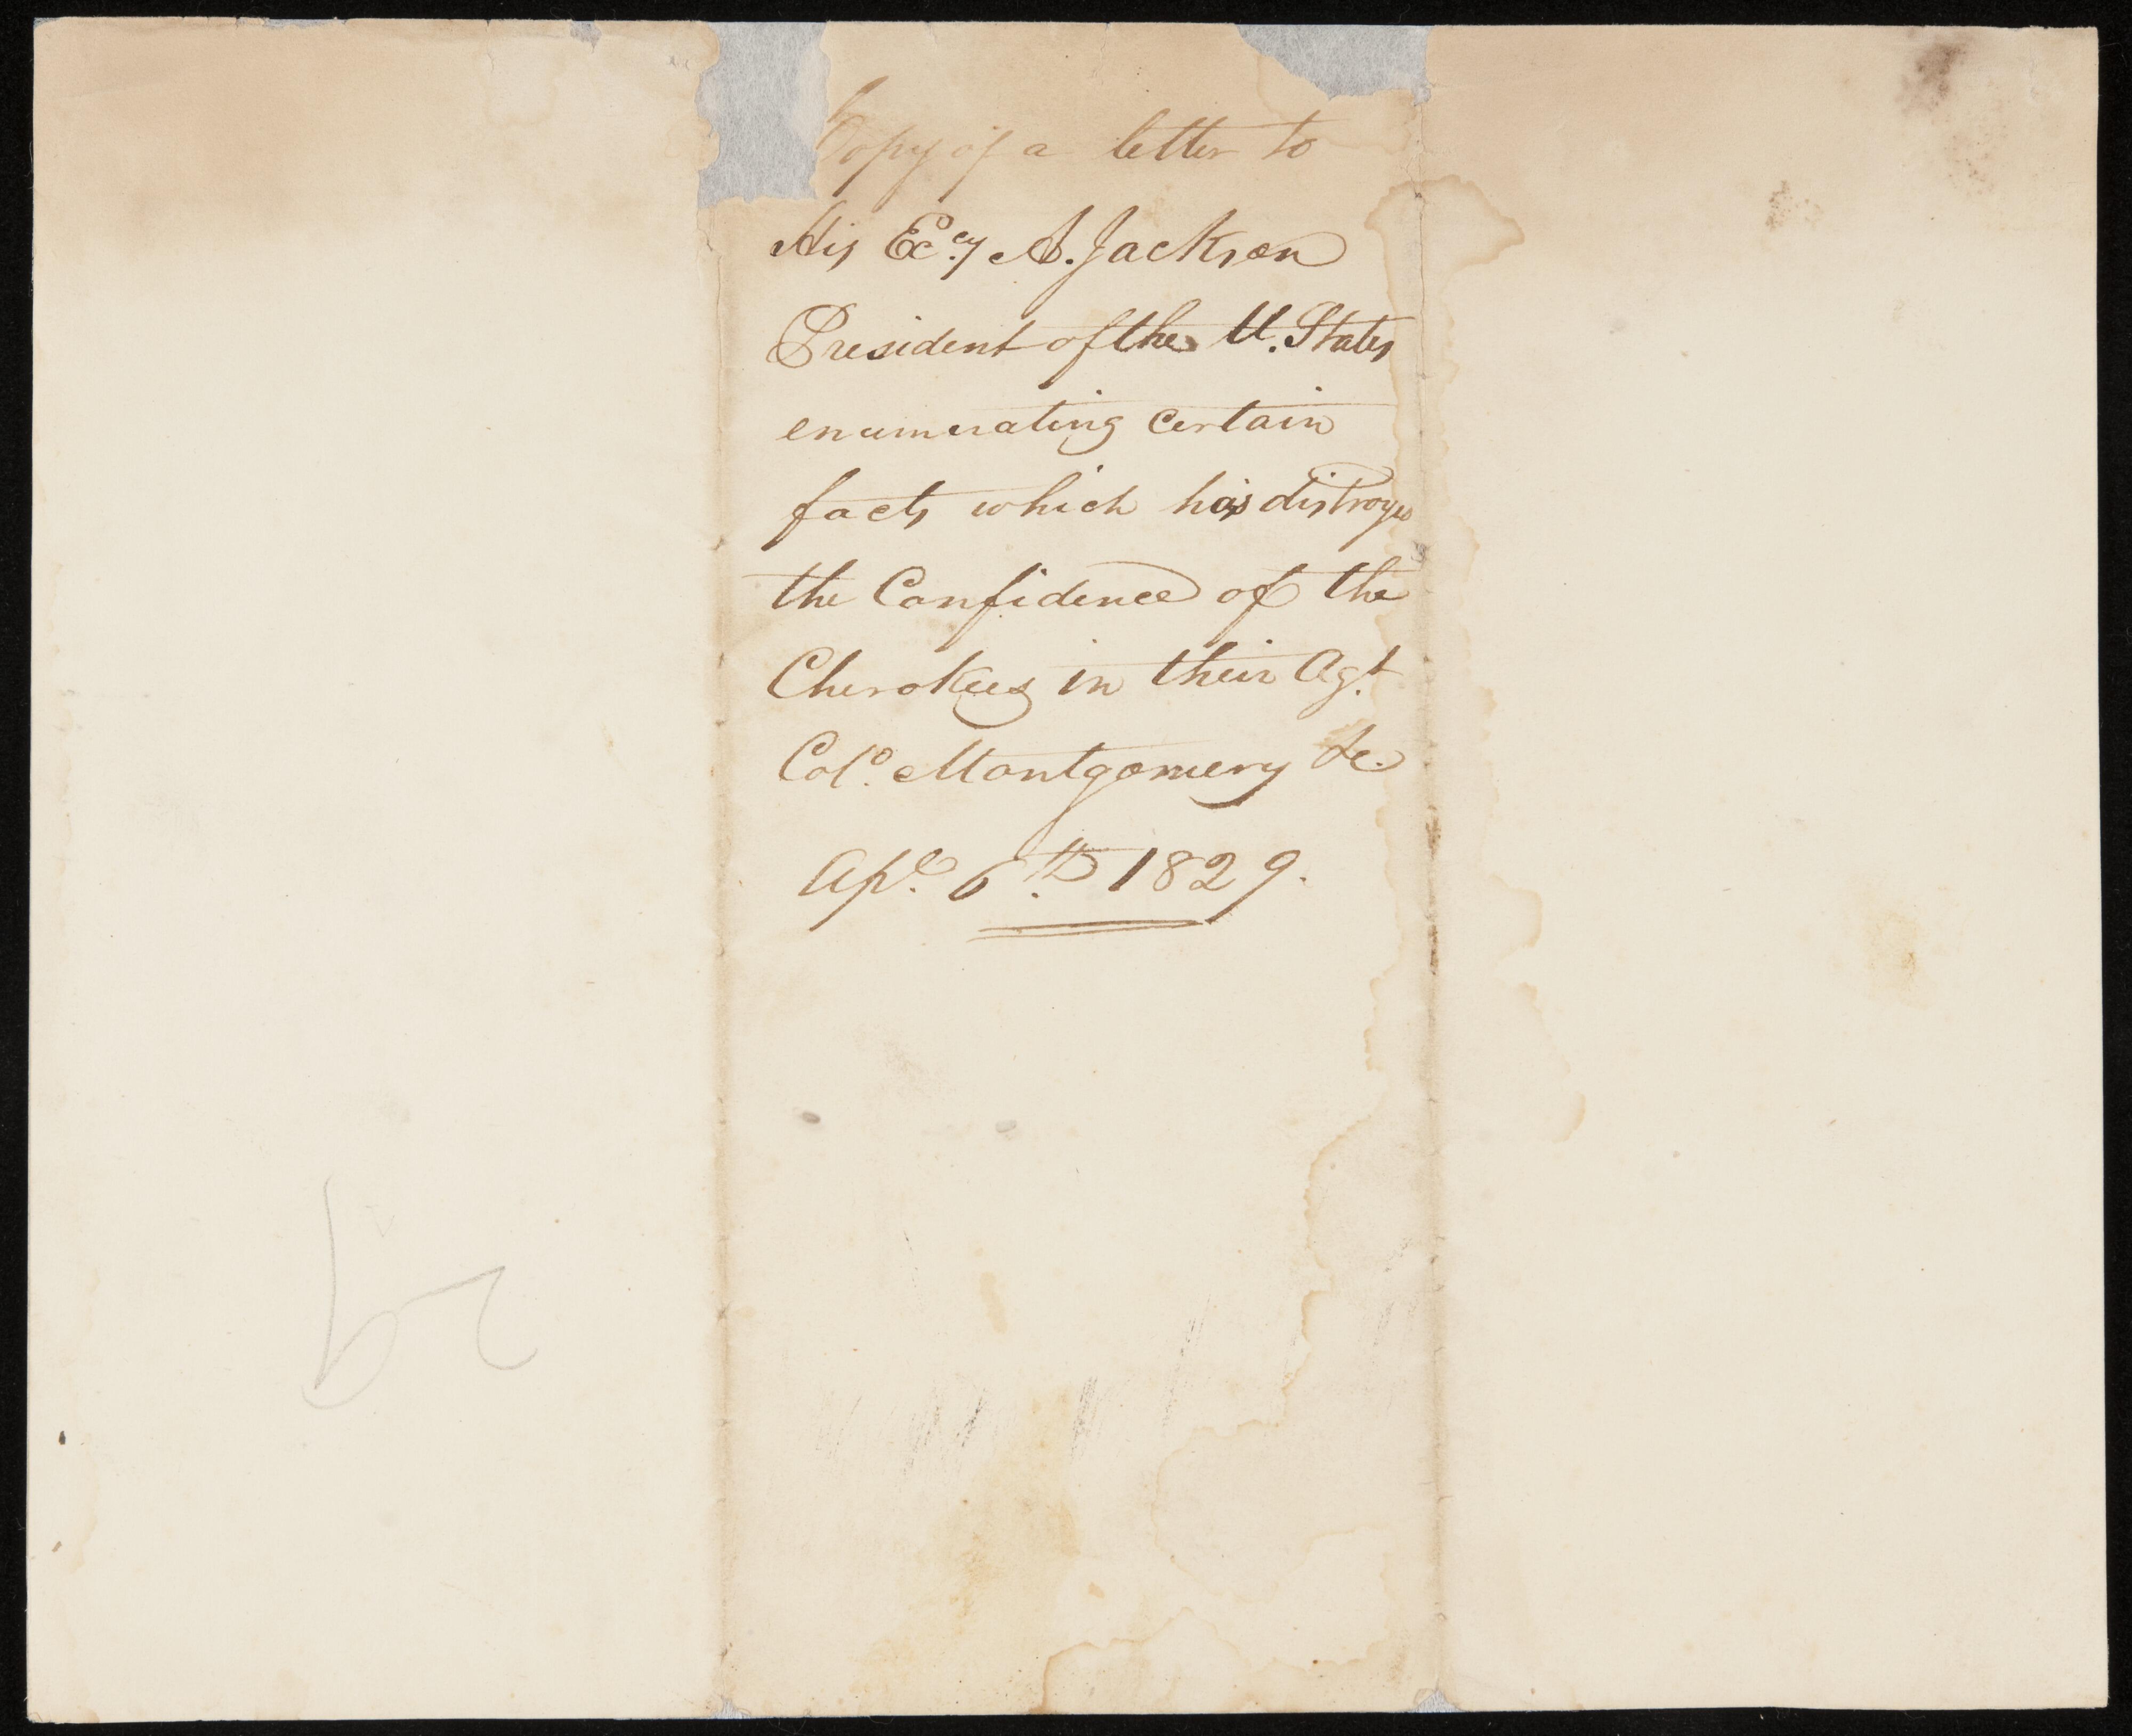 Copy of a letter to
His Excy. A. Jackson
President of the U. States
enumerating certain
facts which has distroyed
the Confidence of the
Cherokees in their Agt.
Colo. Montgomery &c.
Apl. 6th. 1829.